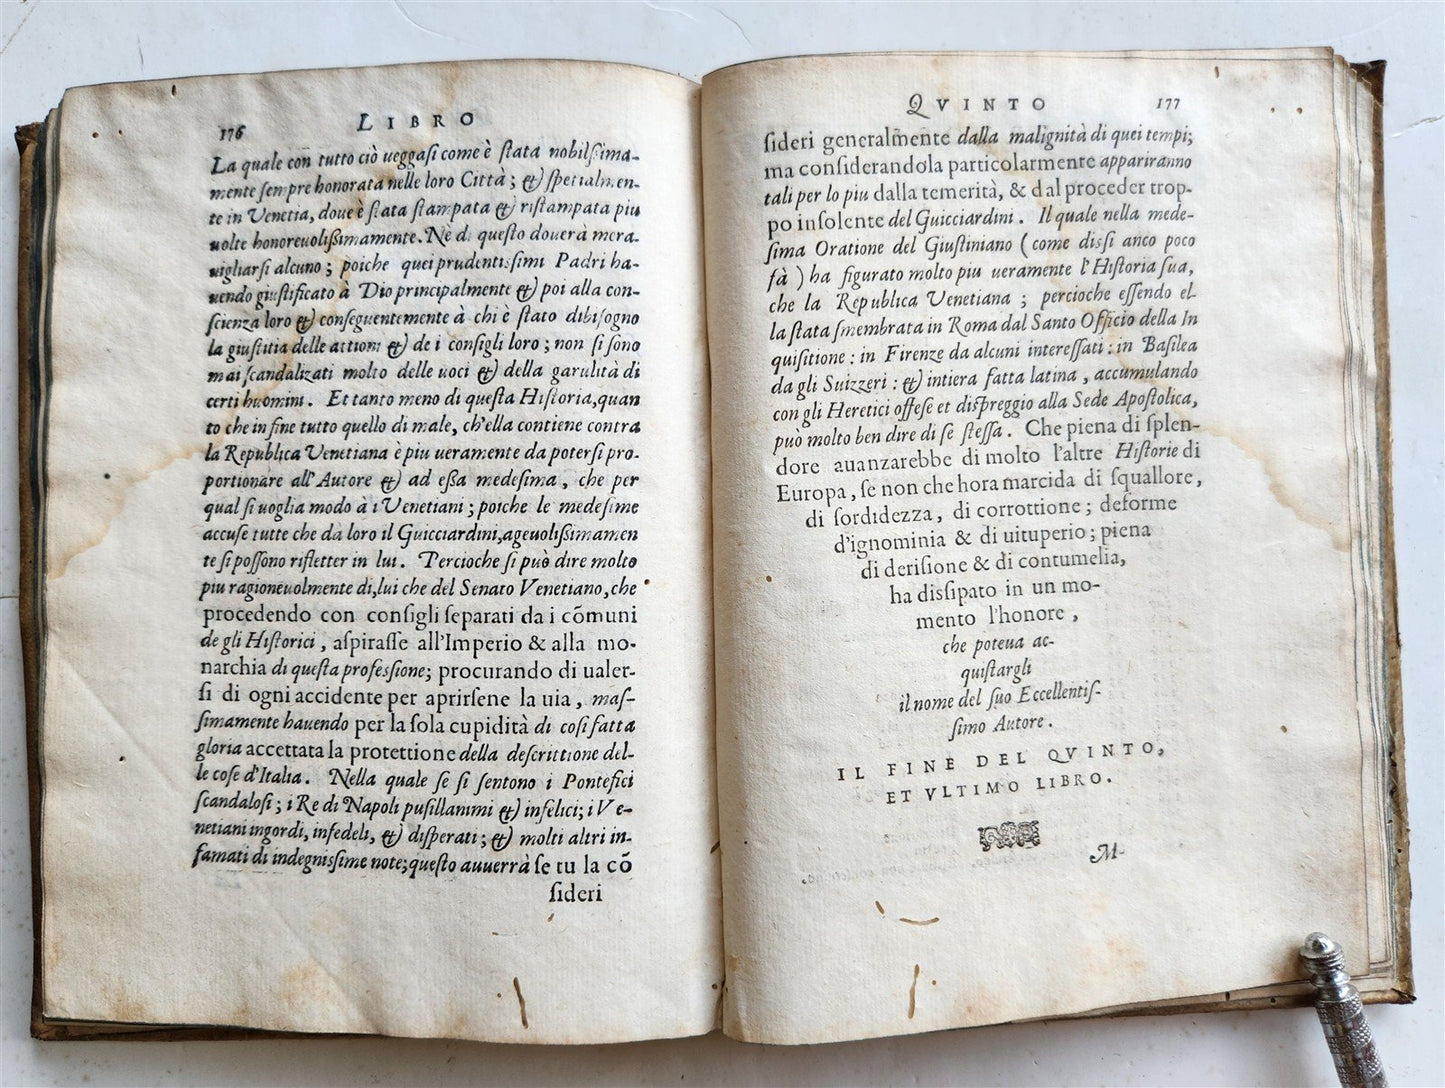 176 LIBRO
La quale con tutto ciò ueggasi come è stata nobilissima-
mente sempre honorata nelle loro Città; & spetialmen-
te in Venetia, doue è stata stampata & ristampata piu
uolte honoreuolissimamente. Nè di questo douerà mera-
uigliarsi alcuno; poiche quei prudentissimi Padri ha-
uendo giustificato à Dio principalmente & poi alla con-
scienza loro & conseguentemente à chi è stato dibisogno
la giustitia delle attioni & de i consigli loro; non si sono
mai scandalizati molto delle uoci & della garulità di
certi huomini. Et tanto meno di questa Historia, quan
to che in fine tutto quello di male, ch'ella contiene contra
la Republica Venetiana è piu ueramente da potersi pro-
portionare all'Autore & ad essa medesima, che per
qual si uoglia modo à i Venetiani; poiche le medesime
accuse tutte che da loro il Guicciardini, ageuolissimamen
te si possono rifletter in lui. Percioche si può dire molto
piu ragioneuolmente di, lui che del Senato Venetiano, che
procedendo con consigli separati da i cõmuni
de gli Historici, aspirasse all'Imperio & alla mo-
narchia di questa professione; procurando di ualer-
si di ogni accidente per aprirsene la uia, mas-
simamente hauendo per la sola cupidità di cosi fatta
gloria accettata la protettione della descrittione del-
le cose d'Italia. Nella quale se si sentono i Pontefici
scandalosi; i Re di Napoli pusillanimi & infelici; i Ve-
netiani ingordi, infedeli, & disperati; & molti altri in-
famati di indegnissime note; questo auuerrà se tu la cõ
sideri
QVINTO 177
sideri generalmẽte dalla malignità di quei tempi;
ma considerandola particolarmente appariranno
tali per lo piu dalla temerità, & dal proceder trop-
po insolente del Guicciardini. Il quale nella mede-
sima Oratione del Giustiniano (come dissi anco poco
fà) ha figurato molto piu ueramente l'Historia sua,
che la Republica Venetiana; percioche essendo el-
la stata smembrata in Roma dal Santo Officio della In
quisitione: in Firenze da alcuni interessati: in Basilea
da gli Suizzeri: & intiera fatta latina, accumulando
con gli Heretici offese et dispreggio alla Sede Apostolica,
può molto ben dire di se stessa. Che piena di splen-
dore auanzarebbe di molto l'altre Historie di
Europa, se non che hora marcida di squallore,
di sordidezza, di corrottione; deforme
d'ignominia & di uituperio; piena
di derisione & di contumelia,
ha dissipato in un mo-
mento l'honore,
che poteua ac-
quistargli
il nome del suo Eccellentis-
simo Autore.
IL FINE DEL QVINTO,
ET VLTIMO LIBRO.
M